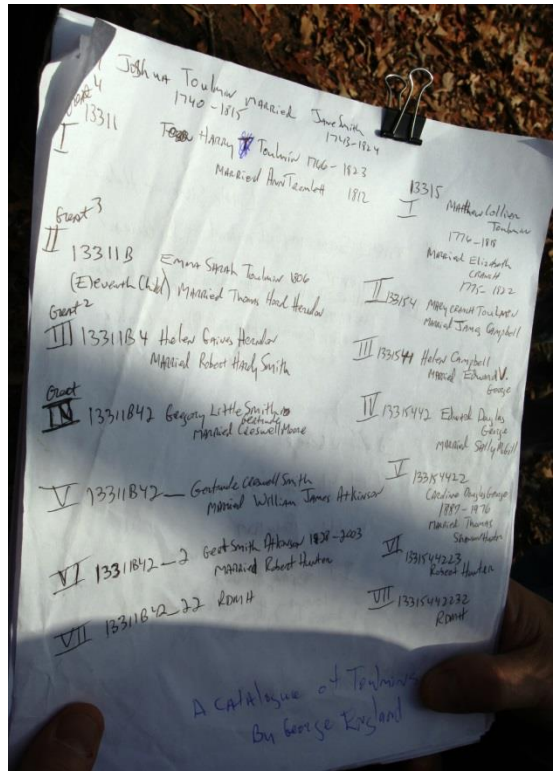 Great 4
Joshua Toulmin MARRIED Jane Smith
1740-1815 1743-1824
13311
I
HARRY Toulmin 1766-1823
MARRIED Ann Tremlett 1812
Great 3
II
13311B Emma SARAH Toulmin 1806
(Eleventh Child) MARRIED Thomas Hord Herndon
Great 2
III 13311B4 Helen Gaines Herndon
MARRIED Robert Hardy Smith
Great
IV 13311B42 Gregory Little Smith
MARRIED Gertrude Creswell Moore
V 13311B42_ Gertrude Creswell Smith
Married William James Atkinson
VI 13311B42_2 Gert Smith Atkinson 1928-2003
MARRIED Robert Hunter
VII 13311B42_22 RDMH
13315
I Matthew Collier
Toulmin
1776-1818
Married Elizabeth
CRANCH
1775-1822
II 133154 MARY CRANCH Toulmin
Married James Campbell
III 1331544 Helen Campbell
MARRIED Edward V.
George
IV 13315442 Edward Douglas
George
MARRIED Sally
V 133154422
Caroline Douglas George
1887-1976
Married Thomas
Hunter
VI
1331544223
Robert Hunter
VII 13315442232
RDMH
A CATALOGUE of Toulmins
By George England